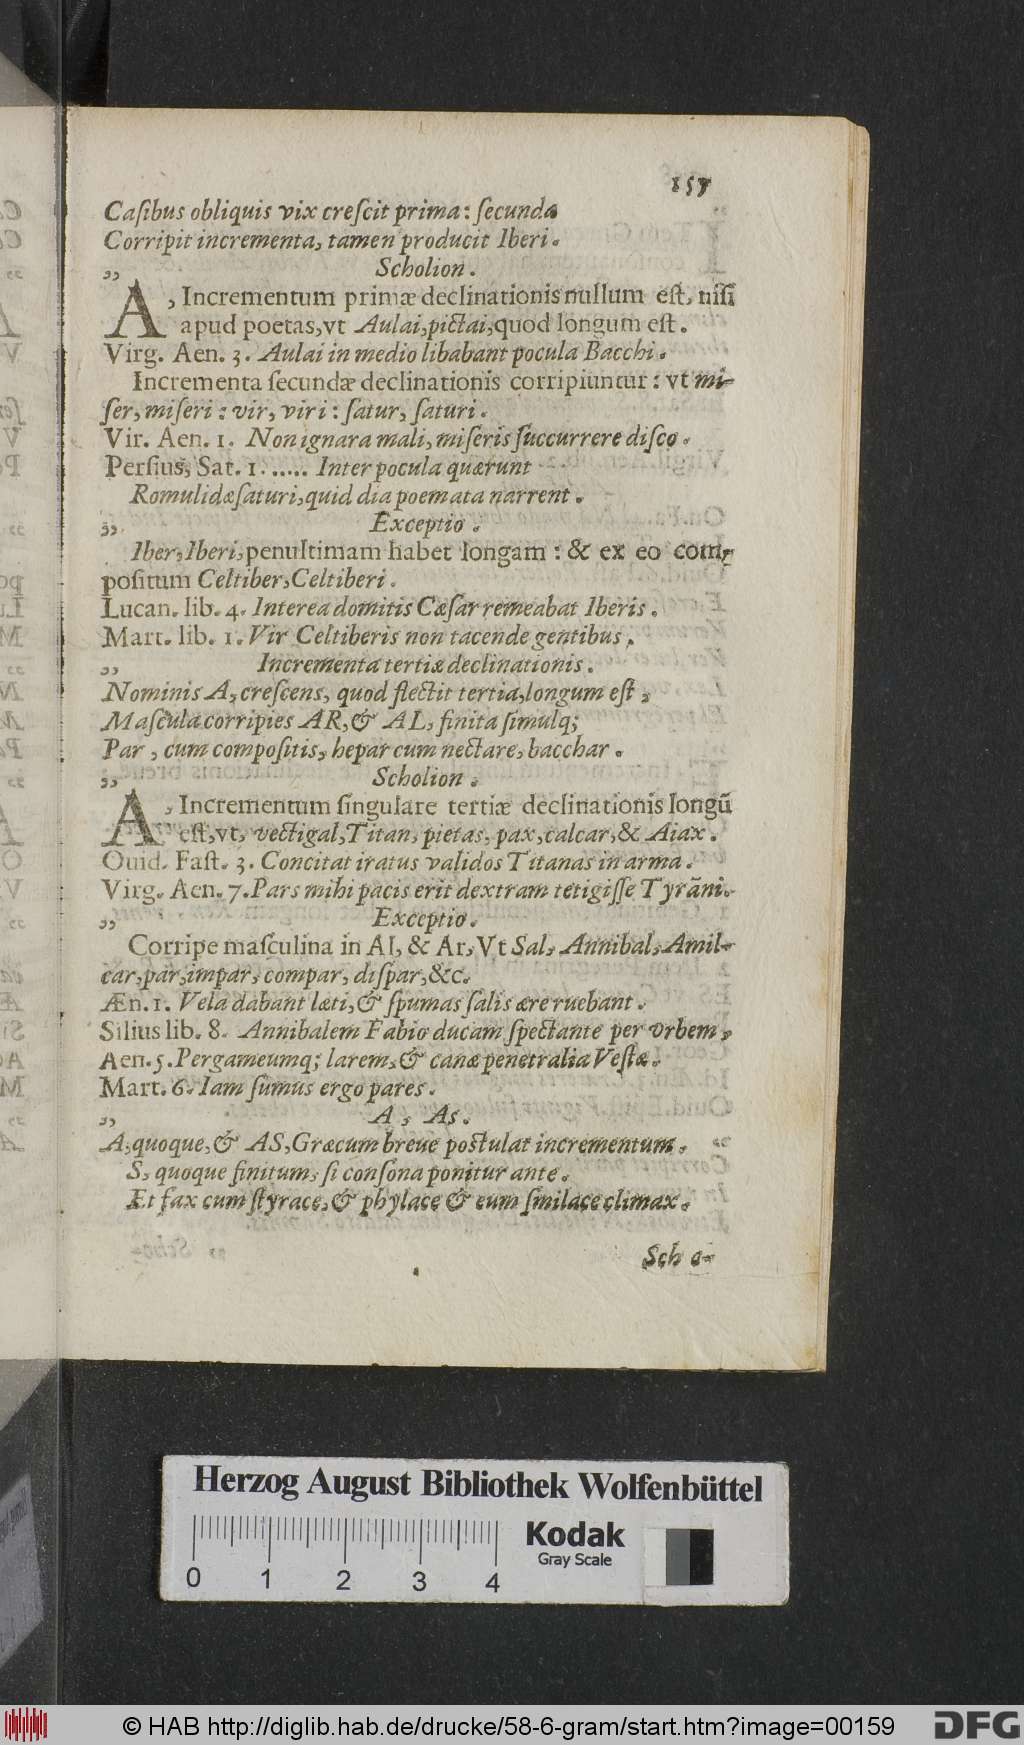 157
Caſibus obliquis vix creſcit prima: ſecunda
Corripit incrementa, tamen producit Iberi.
„ Scholion.
A, Incrementum primæ declinationis nullum eſt, niſi
apud poetas, vt Aulai, pictai, quod longum eſt.
Virg. Aen. 3. Aulai in medio libabant pocula Bacchi.
Incrementa ſecundæ declinationis corripiuntur: vt mi-
ſer, miſeri: vir, viri: ſatur, ſaturi.
Vir. Aen. 1. Non ignara mali, miſeris ſuccurrere diſco.
Perſius, Sat. 1. ..... Inter pocula quærunt
Romulidæ ſaturi, quid dia poemata narrent.
„ Exceptio.
Iber, Iberi, penultimam habet longam: & ex eo com-
poſitum Celtiber, Celtiberi.
Lucan. lib. 4. Interea domitis Cæſar remeabat Iberis.
Mart. lib. 1. Vir Celtiberis non tacende gentibus.
„ Incrementa tertiæ declinationis.
Nominis A, creſcens, quod flectit tertia, longum eſt,
Maſcula corripies AR, & AL, finita ſimulq;
Par, cum compoſitis, hepar cum nectare, bacchar.
„ Scholion.
A, Incrementum ſingulare tertiæ declinationis longū
eſt, vt, vectigal, Titan, pietas, pax, calcar, & Aiax.
Ouid. Faſt. 3. Concitat iratus validos Titanas in arma.
Virg. Aen. 7. Pars mihi pacis erit dextram tetigiſſe Tyrāni.
„ Exceptio.
Corripe maſculina in Al, & Ar, Vt Sal, Annibal, Amil-
car, par, impar, compar, diſpar, &c.
Æn. 1. Vela dabant læti, & ſpumas ſalis ære ruebant.
Silius lib. 8. Annibalem Fabio ducam ſpectante per vrbem,
Aen. 5. Pergameumq; larem, & canæ penetralia Veſtæ.
Mart. 6. Iam ſumus ergo pares.
„ A, As.
A, quoque, & AS, Græcum breue poſtulat incrementum.
S, quoque finitum, ſi conſona ponitur ante.
Et fax cum ſtyrace, & phylace & cum ſmilace climax.
Sch o-
Herzog August Bibliothek Wolfenbüttel
Kodak
Gray Scale
0 1 2 3 4
© HAB http://diglib.hab.de/drucke/58-6-gram/start.htm?image=00159
DFG